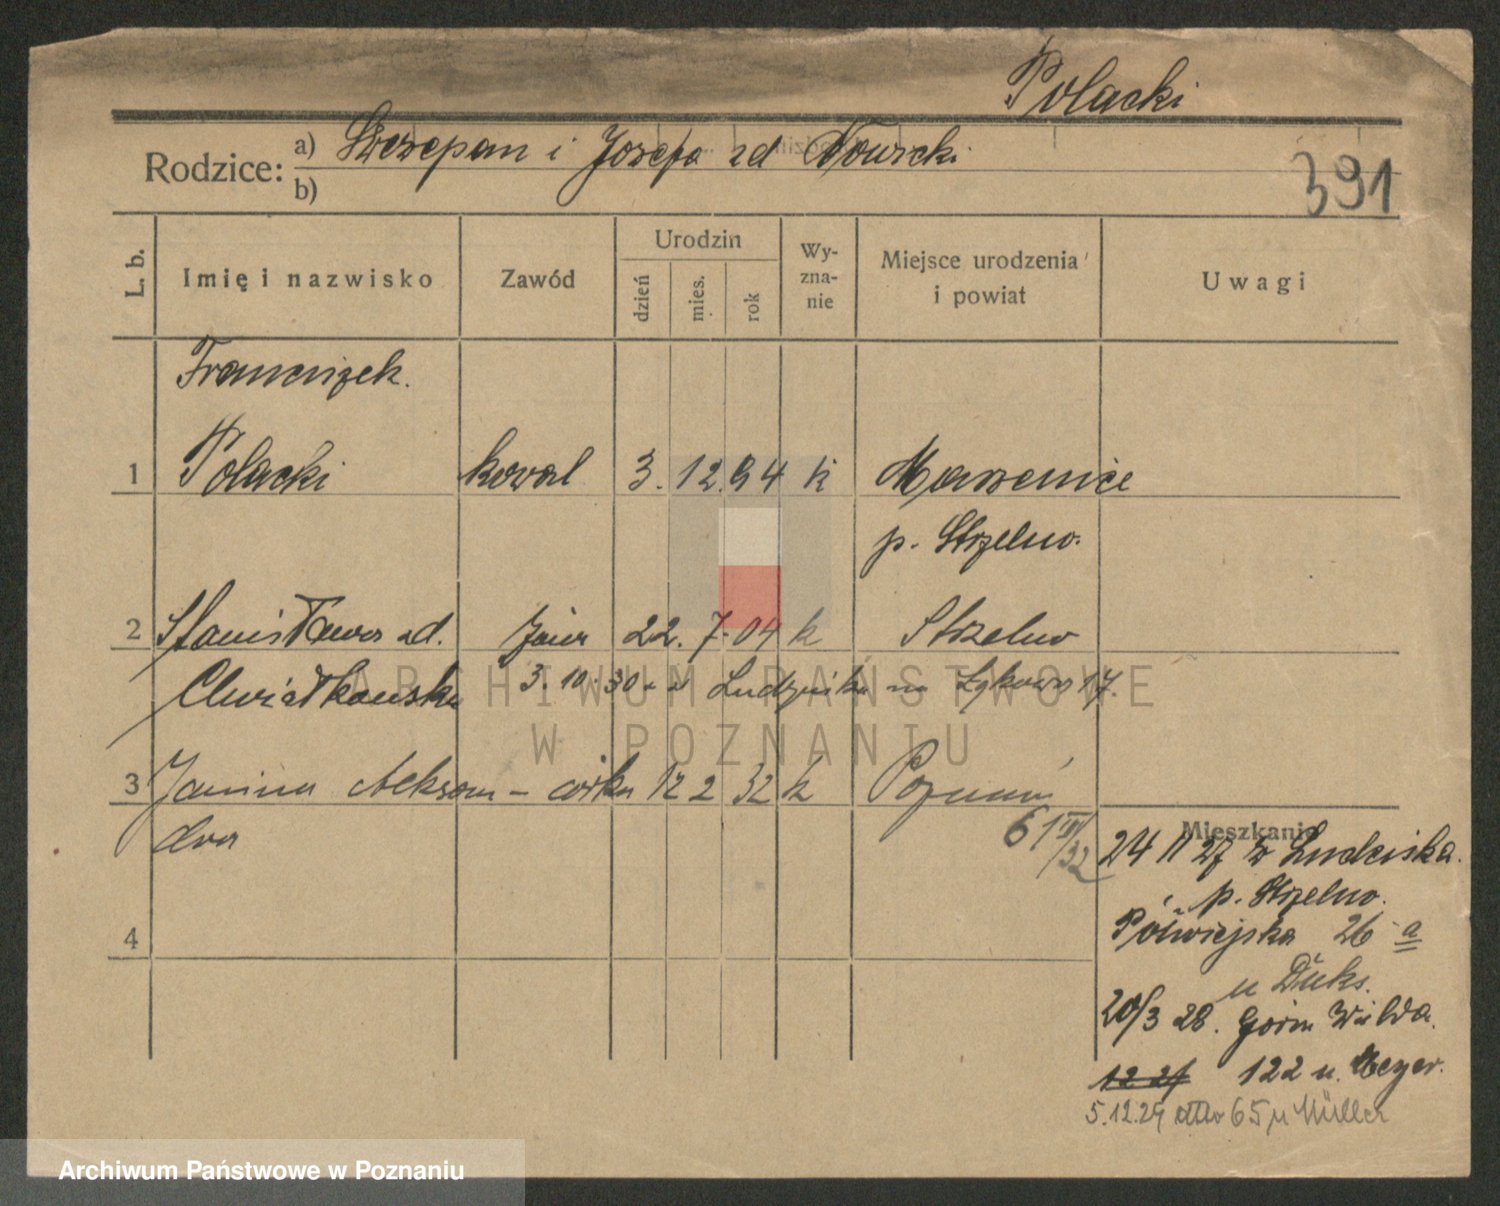 Polacki
Rodzice: a) Szczepan i Józefa zd Nowicki
b)
391
L. b. Imię i nazwisko Zawód Urodzin dzień mies. rok Wyznanie Miejsce urodzenia i powiat Uwagi
Franciszek
1 Polacki kowal 3. 12. 94 k
p. Strzelno.
2 Stanisława zd. żona 22. 7. 04 k Strzelno
Chwiałkowska 3. 10. 30 17.
3 Janina Aleksan- córka 12 2 32 k Poznań
dra
61
32
Mieszkanie
24 11 27 z Ludziska.
p. Strzelno.
Półwiejska 26 a
u
20/3 28. Górna Wilda.
12 27 122 u. Meyer.
5.12.29 dtto 65 u Müller
4
ARCHIWUM PAŃSTWOWE
W POZNANIU
Archiwum Państwowe w Poznaniu